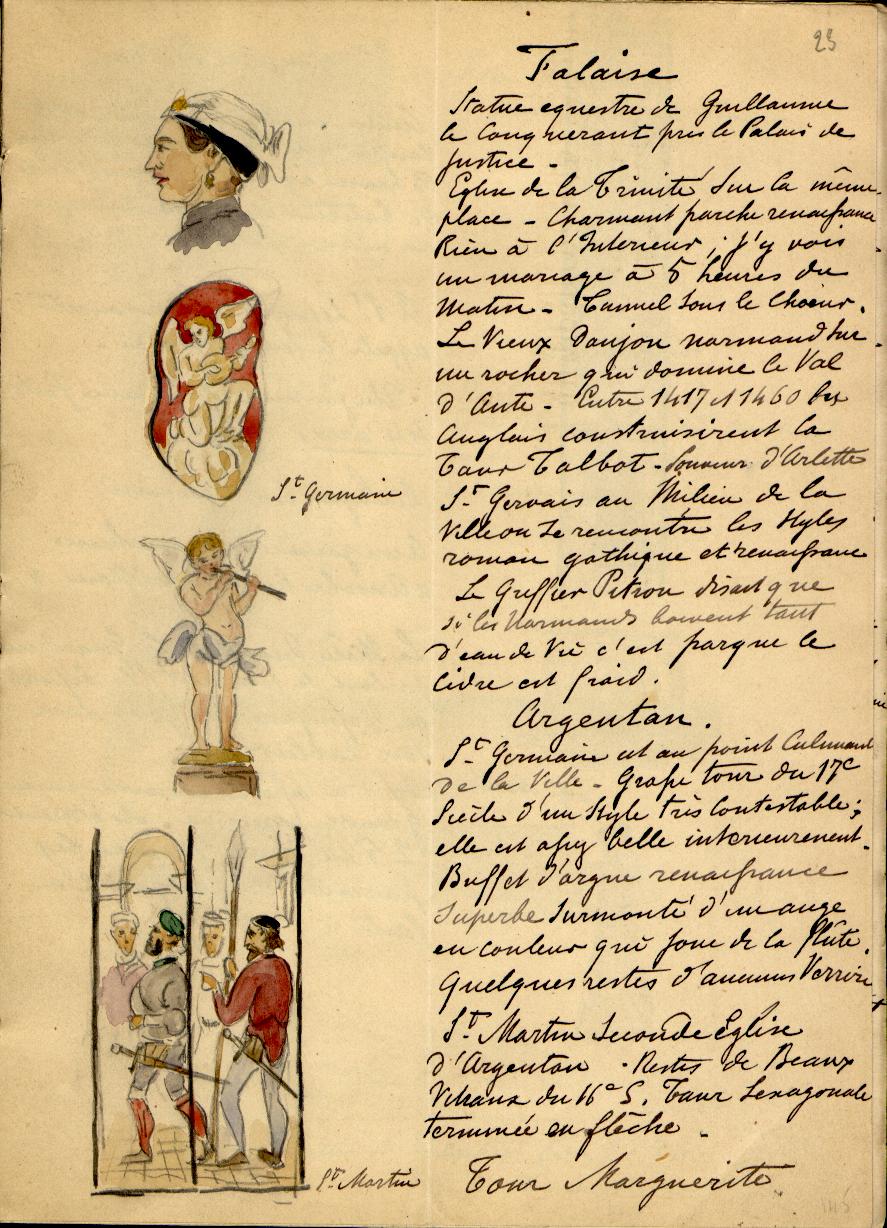 23
Falaise
Statue equestre de Guillaume
le Conquerant près le Palais de
Justice -
Eglise de la Trinité sur la même
place - Charmant porche renaissance
Rien à l'Interieur ; J'y vois
un mariage à 5 heures du
Matin - Tunnel sous le Choeur.
Le Vieux Donjon normand sur
un rocher qui domine le Val
d'Ante - Entre 1417 et 1460 les
Anglais construisirent la
Tour Talbot - Souvenir d'Arlette
St Gervais au Milieu de la
Ville ou se rencontre les Styles
roman gothique et renaissance
Le Greffier Pitron disait que
si les Normands boivent tant
d'eau de Vie c'est parque le
Cidre est froid.
Argentan.
St Germain est au point Culminant
de la Ville - Grosse tour du 17e
Siècle d'un Style très Contestable ;
elle est assez belle interieurement.
Buffet d'orgue renaissance
Superbe Surmonté d'un ange
en couleur qui joue de la flûte.
Quelques restes d'anciens Verrières
St Martin Seconde Eglise
d'Argentan . Restes de Beaux
Vitraux du 16e S. Tour hexagonale
terminée en flèche -
Tour Marguerite
St Germain
St Martin